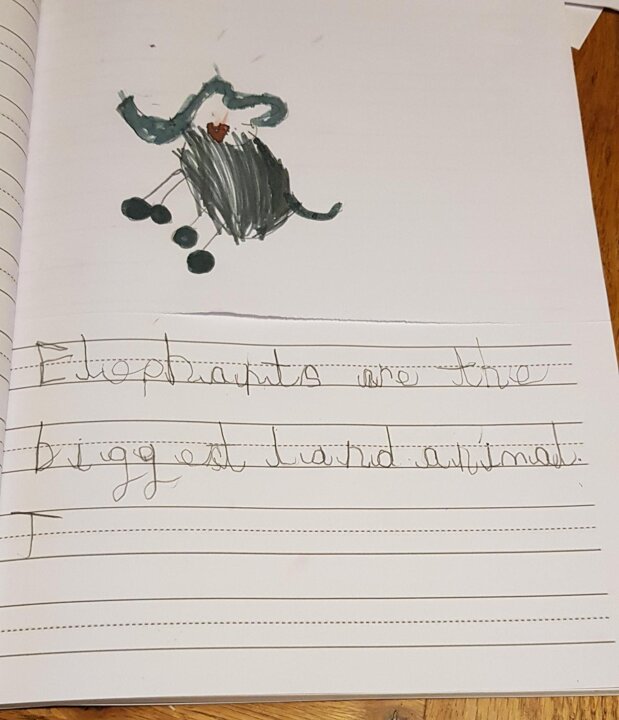 Elephants are the
biggest land animal.
T